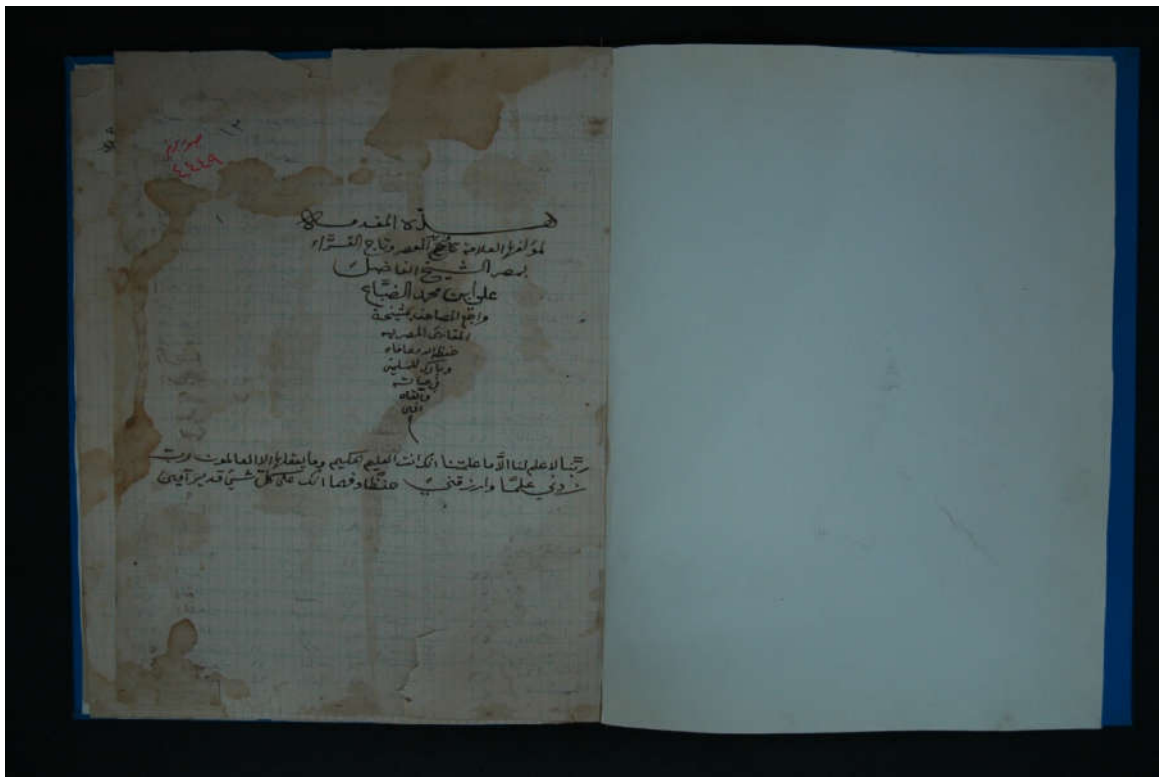 هذه المقدمة
لمؤلفها العلامة العصر وتاج القراء
بمصر الشيخ الفاضل
علي ابن محمد الضباع
مراجع المصاحف بمشيخة
المقارئ المصريه
حفظه الله وعافاه
وبارك للمسلمين
في حياته
آمين
ربنا لا علم لنا الا ما علمتنا انك انت العليم الحكيم وما يعقلها الا العالمون رب
زدني علمًا وارزقني حفظًا وفهما انك على كل شيئ قدير آمين
٤٤٤٩